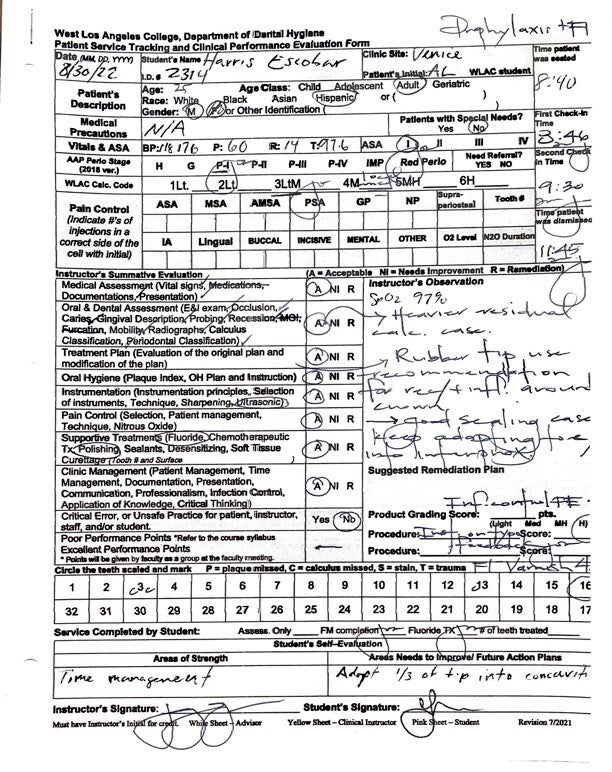 Prophylaxis +Fl
West Los Angeles College, Department of Dental Hygiene
Patient Service Tracking and Clinical Performance Evaluation Form
Date (MM, DD, YYYY) 8/30/22 Student's Name Harris Escobar Clinic Site: Venice
I.D.# 2314 Patient's Initial: AL WLAC student
Time patient was seated 8:40
Patient's Description
Age: Age Class: Child Adolescent Adult Geriatric
Race: White Black Asian Hispanic or ( )
Gender: M F or Other Identification (
Medical Precautions N/A Patients with Special Needs? Yes No
First Check-In Time 8:46
Vitals & ASA BP: 118/76 P: 60 R: 14 T: 97.6 ASA I II III IV
AAP Perio Stage (2018 ver.) H G P-I P-II P-III P-IV IMP Red Perio Need Referral? YES NO
Second Check in Time 9:30
WLAC Calc. Code 1Lt. 2Lt 3LtM 4M 5MH 6H
Pain Control (Indicate #'s of injections in a correct side of the cell with initial)
ASA MSA AMSA PSA GP NP Supra-periosteal Tooth #
IA Lingual BUCCAL INCISIVE MENTAL OTHER O2 Level N2O Duration
Time patient was dismissed 11:45
Instructor's Summative Evaluation (A = Acceptable NI = Needs Improvement R = Remediation)
Medical Assessment (Vital signs, Medications, Documentations, Presentation) A NI R
Oral & Dental Assessment (E&I exam, Occlusion, Caries, Gingival Description, Probing, Recession, MGI, Furcation, Mobility, Radiographs, Calculus Classification, Periodontal Classification) A NI R
Treatment Plan (Evaluation of the original plan and modification of the plan) A NI R
Oral Hygiene (Plaque Index, OH Plan and Instruction) A NI R
Instrumentation (Instrumentation principles, Selection of instruments, Technique, Sharpening, Ultrasonic) A NI R
Pain Control (Selection, Patient management, Technique, Nitrous Oxide) A NI R
Supportive Treatments (Fluoride, Chemotherapeutic Tx, Polishing, Sealants, Desensitizing, Soft Tissue Curettage (Tooth # and Surface) A NI R
Clinic Management (Patient Management, Time Management, Documentation, Presentation, Communication, Professionalism, Infection Control, Application of Knowledge, Critical Thinking) A NI R
Critical Error, or Unsafe Practice for patient, instructor, staff, and/or student. Yes No
Poor Performance Points *Refer to the course syllabus
Excellent Performance Points
* Points will be given by faculty as a group at the faculty meeting.
Instructor's Observation
SpO2 97%
→ Heavier residual calc. case.
→ Rubber tip use recommendation
for rec/infl around
→ good scaling case
keep adapting
into
Suggested Remediation Plan
Inf. control
Product Grading Score: pts.
(Light Med MH H)
Procedure: Score:
Procedure: Score:
Circle the teeth scaled and mark P = plaque missed, C = calculus missed, S = stain, T = trauma Fl Varnish
1 2 3 4 5 6 7 8 9 10 11 12 13 14 15 16
32 31 30 29 28 27 26 25 24 23 22 21 20 19 18 17
Service Completed by Student: Assess. Only FM completion Fluoride TX # of teeth treated
Student's Self-Evaluation
Areas of Strength Areas Needs to Improve/ Future Action Plans
Time management Adapt 1/3 of tip into concaviti
Instructor's Signature: Student's Signature:
Must have Instructor's Initial for credit. White Sheet – Advisor Yellow Sheet – Clinical Instructor Pink Sheet – Student Revision 7/2021